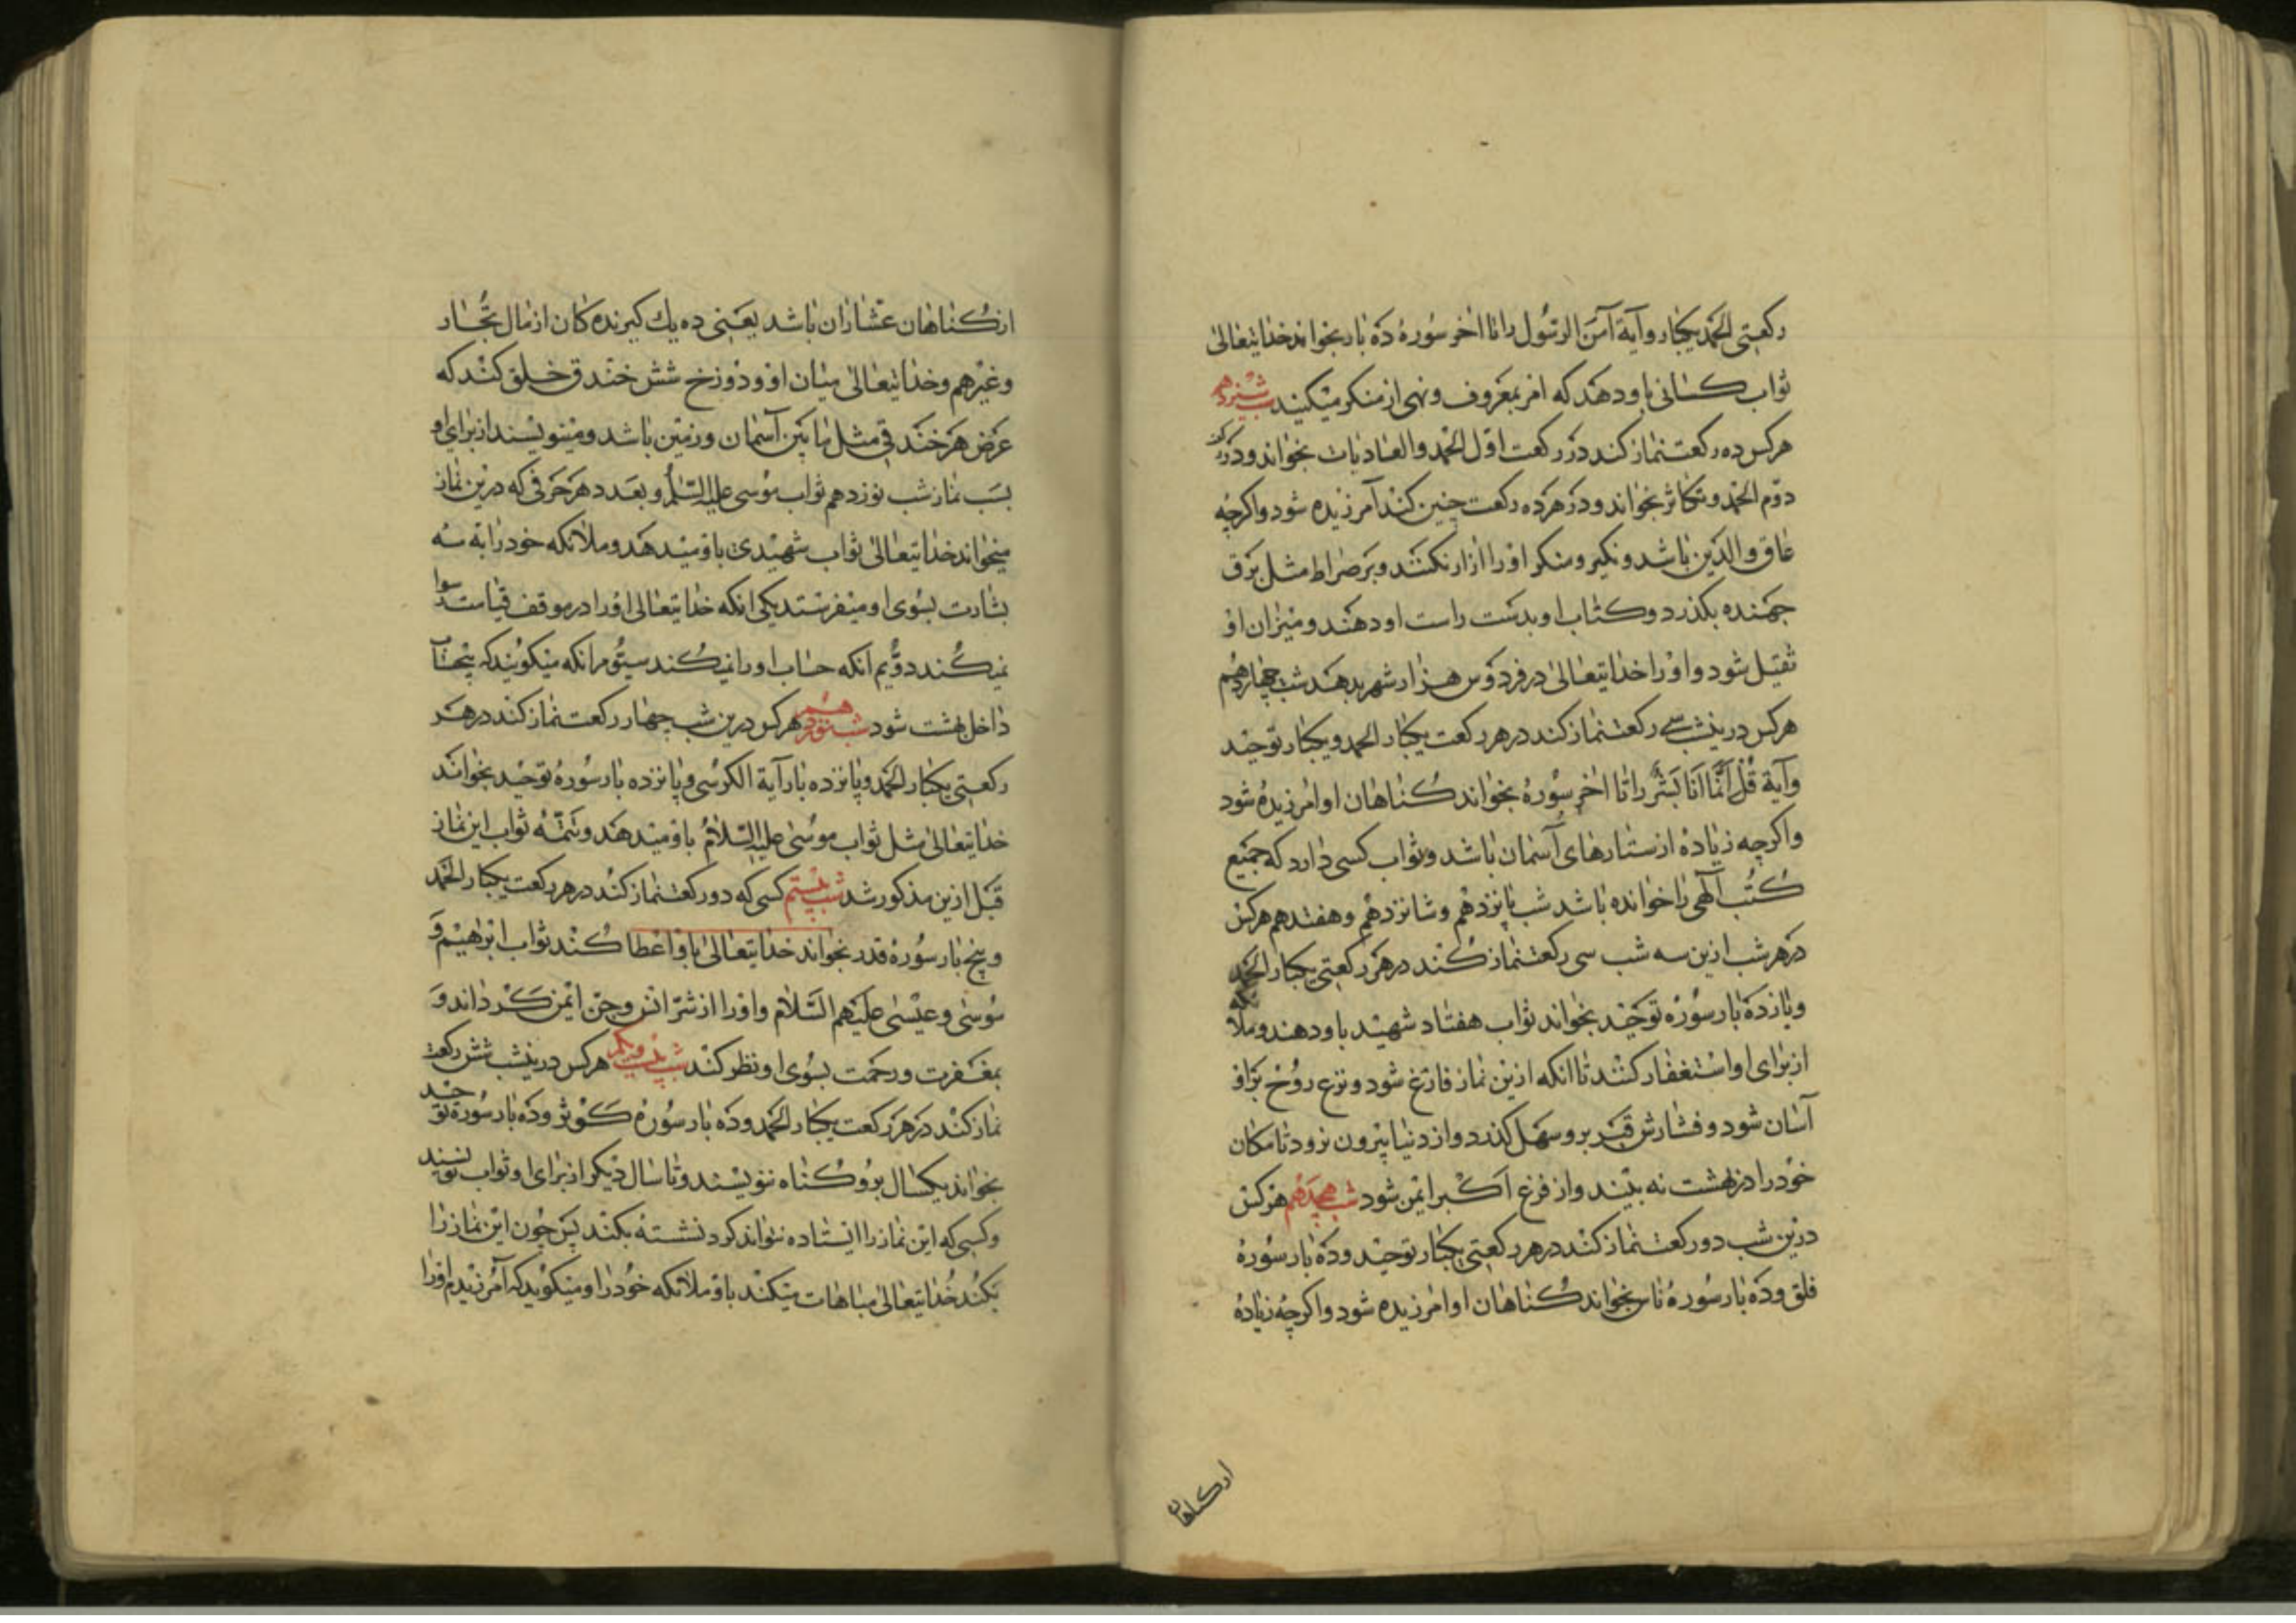 رکعتی الحمد یکبار و آیهٔ آمَنَ الرسُول را تا اخر سُورهٔ دَه بار بخواند خدایتعالیٰ
ثواب کسانی باو دهد که امر بمعروف و نهی از منکر میکنند شب سیزدهم
هرکس ده رکعت نماز کند در رکعت اوّل الحمد و العادیات بخواند و در رکعت
دوّم الحمد و تکاثر بخواند و در هر ده رکعت چنین کند آمرزیده شود و اگرچه
عاق والدین باشد و نکیر و منکر او را ازار نکنند و بر صراط مثل برق
جهنده بکذرد و کتاب او بدست راست او دهند و میزان او
ثقیل شود و او را خدایتعالیٰ در فردوس هزار شهر بدهد شب چهاردهم
هرکس درینشب سی رکعت نماز کند در هر رکعت یکبار الحمد و یکبار توحید
و آیة قُل اَنّما اَنَا بَشَرٌ را تا اخر سُورهٔ بخواند کناهان او امرزیده شود
و اکرچه زیاده از ستارهای آسمان باشد و ثواب کسی دارد که جمیع
کُتُب آلٰهی را خوانده باشد شب پانزدهم و شانزدهم و هفتدهم هرکس
در هر شب ازین سه شب سی رکعت نماز کند در هر رکعتی یکبار الحمد
و یازده بار سُورهٔ توحید بخواند ثواب هفتاد شهید باو دهند و ملائکه
از برای او استغفار کنند تا انکه ازین نماز فارغ شود و نزع روُح بر او
آسان شود و فشارش قبر برو سهل کذرد و از دنیا بیرون نرود تا مکان
خود را در بهشت نه بیند و از فزع اکبر ایمن شود شب هجدهم هر کس
درین شب دو رکعت نماز کند در هر رکعتی یکبار توحید و ده بار سُورهٔ
فلق و ده بار سُورهٔ ناس بخواند کناهان او امرزیده شود و اکرچه زیاده
از کناهان
از کُناهان عشاران باشد یعنی ده یك کیرنده کان از مال تُجّار
و غیرهم و خدایتعالیٰ میان او و دوزخ شش خندق خلق کند که
عرض هر خندقی مثل مابین آسمان و زمین باشد و مینویسند از برای او
بسَب نماز شب نوزدهم ثواب موسی علیه السّلم و بعدد هر حرفی که درین نماز
میخواند خدایتعالیٰ ثواب شهیدی باو میدهد و ملائکه خود را به سه
بشارت بسُوی او میفرستد یکی انکه خدایتعالیٰ او را در موقف قیامت رسوا
نمیکُند دوُّیم انکه حساب او را نمیکُند سیّوم انکه میکویند که بیحساب
داخل بهشت شود شب نوزدهم هرکس درین شب چهار رکعت نماز کند در هر
رکعتی یکبار الحمد و پانزده بار آیة الکرسی و پانزده بار سُورهٔ توحید بخواند
خدایتعالیٰ مثل ثواب موُسیٰ علیه السّلامُ باو میدهد و تتمّه ثواب این نماز
قبل ازین مذکور شد شب بیستم کسی که دو رکعت نماز کند در هر رکعت یکبار الحمد
و پنج بار سُورهٔ قدر بخواند خدایتعالیٰ باو اعطا کُند ثواب ابرٰهیم و
مُوسٰی و عیسٰی علیهم السّلام و او را از شرّ انس و جن ایمن کرداند و
بمغفرت و رحمت بسُوی او نظر کند شب بیست ویکم هرکس درینشب شش رکعت
نماز کند در هر رکعت یکبار الحمد و ده بار سُورهٔ کوثر و ده بار سُورهٔ توحید
بخواند یکسال برو کُناه ننویسند و تا سال دیکر از برای او ثواب نویسند
و کسی که این نماز را ایستاده نتواند کرد نشسته بکند پس چون این نماز را
بکُند خُدایتعالیٰ مباهات میکند باو ملائکه خود را و میکوید که آمرزیدم او را